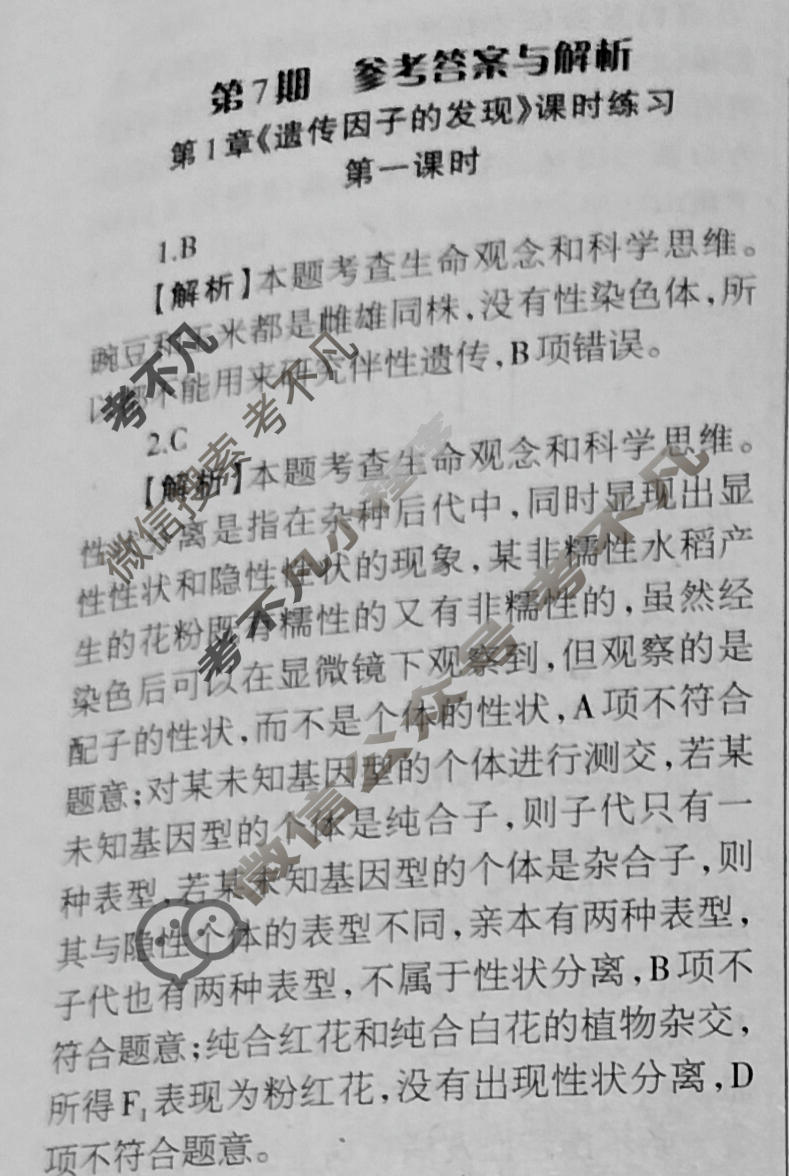 第7期 参考答案与解析
第1章《遗传因子的发现》课时练习
第一课时
1.B
【解析】本题考查生命观念和科学思维。
豌豆和玉米都是雌雄同株,没有性染色体,所
以都不能用来研究伴性遗传,B项错误。
2.C
【解析】本题考查生命观念和科学思维。
性状分离是指在杂种后代中,同时显现出显
性性状和隐性性状的现象,某非糯性水稻产
生的花粉既有糯性的又有非糯性的,虽然经
染色后可以在显微镜下观察到,但观察的是
配子的性状,而不是个体的性状,A项不符合
题意;对某未知基因型的个体进行测交,若某
未知基因型的个体是纯合子,则子代只有一
种表型,若某未知基因型的个体是杂合子,则
其与隐性个体的表型不同,亲本有两种表型,
子代也有两种表型,不属于性状分离,B项不
符合题意;纯合红花和纯合白花的植物杂交,
所得F₁表现为粉红花,没有出现性状分离,D
项不符合题意。
考不凡
微信搜索 考不凡
考不凡小程序
微信公众号 考不凡